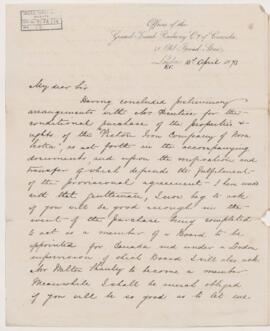 Offices of the
Grand Trunk Railway Co. of Canada
21 Old Broad Street
London
E.C. April 1873
My dear Sir
Having concluded preliminary
arrangements with Mr for the
conditional purchase of the properties &
rights of the "Pictou Iron Company of Nova
Scotia", as set forth in the accompanying
documents and upon the inspection and
transfer of which depends the fulfilment
of the provisional agreement I have made
with that gentleman, I now beg to ask
if you will be good enough in the
event of the purchase being completed
to act as a member of a Board to be
appointed for Canada and under a London
supervision of ideal Board I will also ask
Mr Walter Shanly to become a member
Meanwhile I shall be much obliged
if you will be so good as to let me